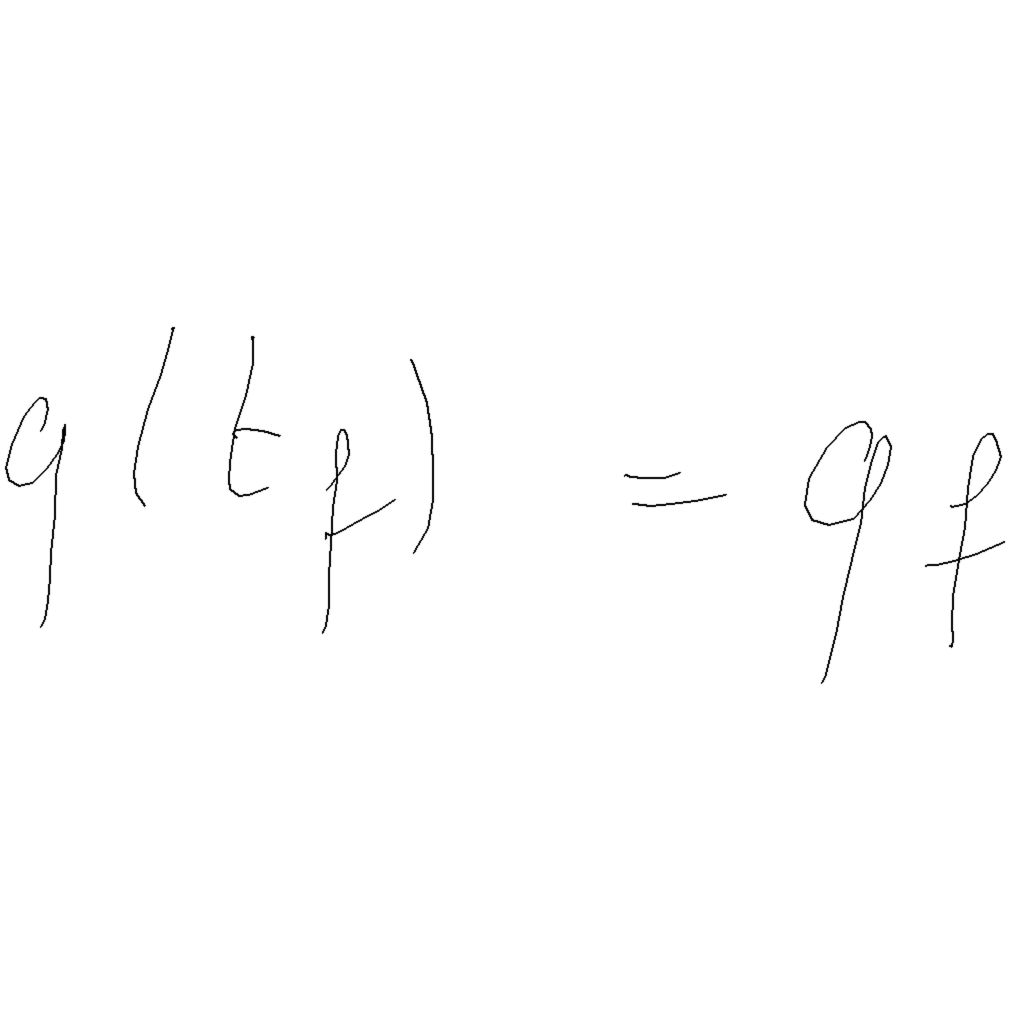 q(t_f) = q_f